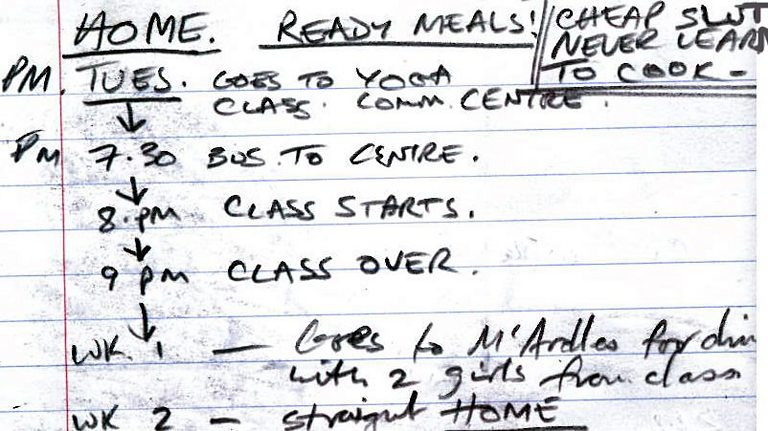 HOME. READY MEALS!
CHEAP SLUT
NEVER LEARN
TO COOK -
PM. TUES. GOES TO YOGA
CLASS. COMM. CENTRE.
PM 7.30 BUS TO CENTRE.
8.PM CLASS STARTS.
9 PM CLASS OVER.
WK. 1 — Goes to M'Ardles for
with 2 girls from class
WK 2 — straight HOME